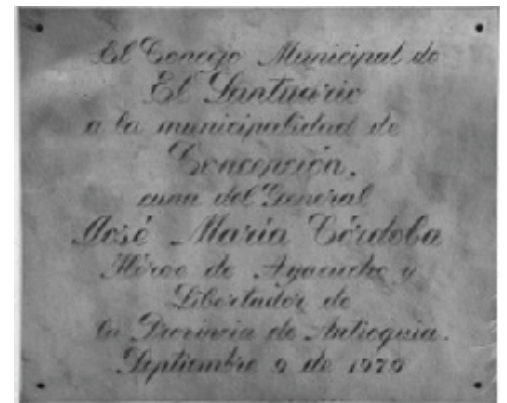 El Concejo Municipal de
El Santuario
a la municipalidad de
Concepción,
cuna del General
José María Córdoba
Héroe de Ayacucho y
Libertador de
la Provincia de Antioquia.
Septiembre 9 de 1979